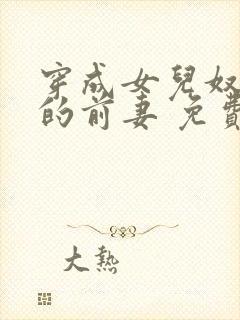 穿成女兒奴
的前妻 免費
大熱